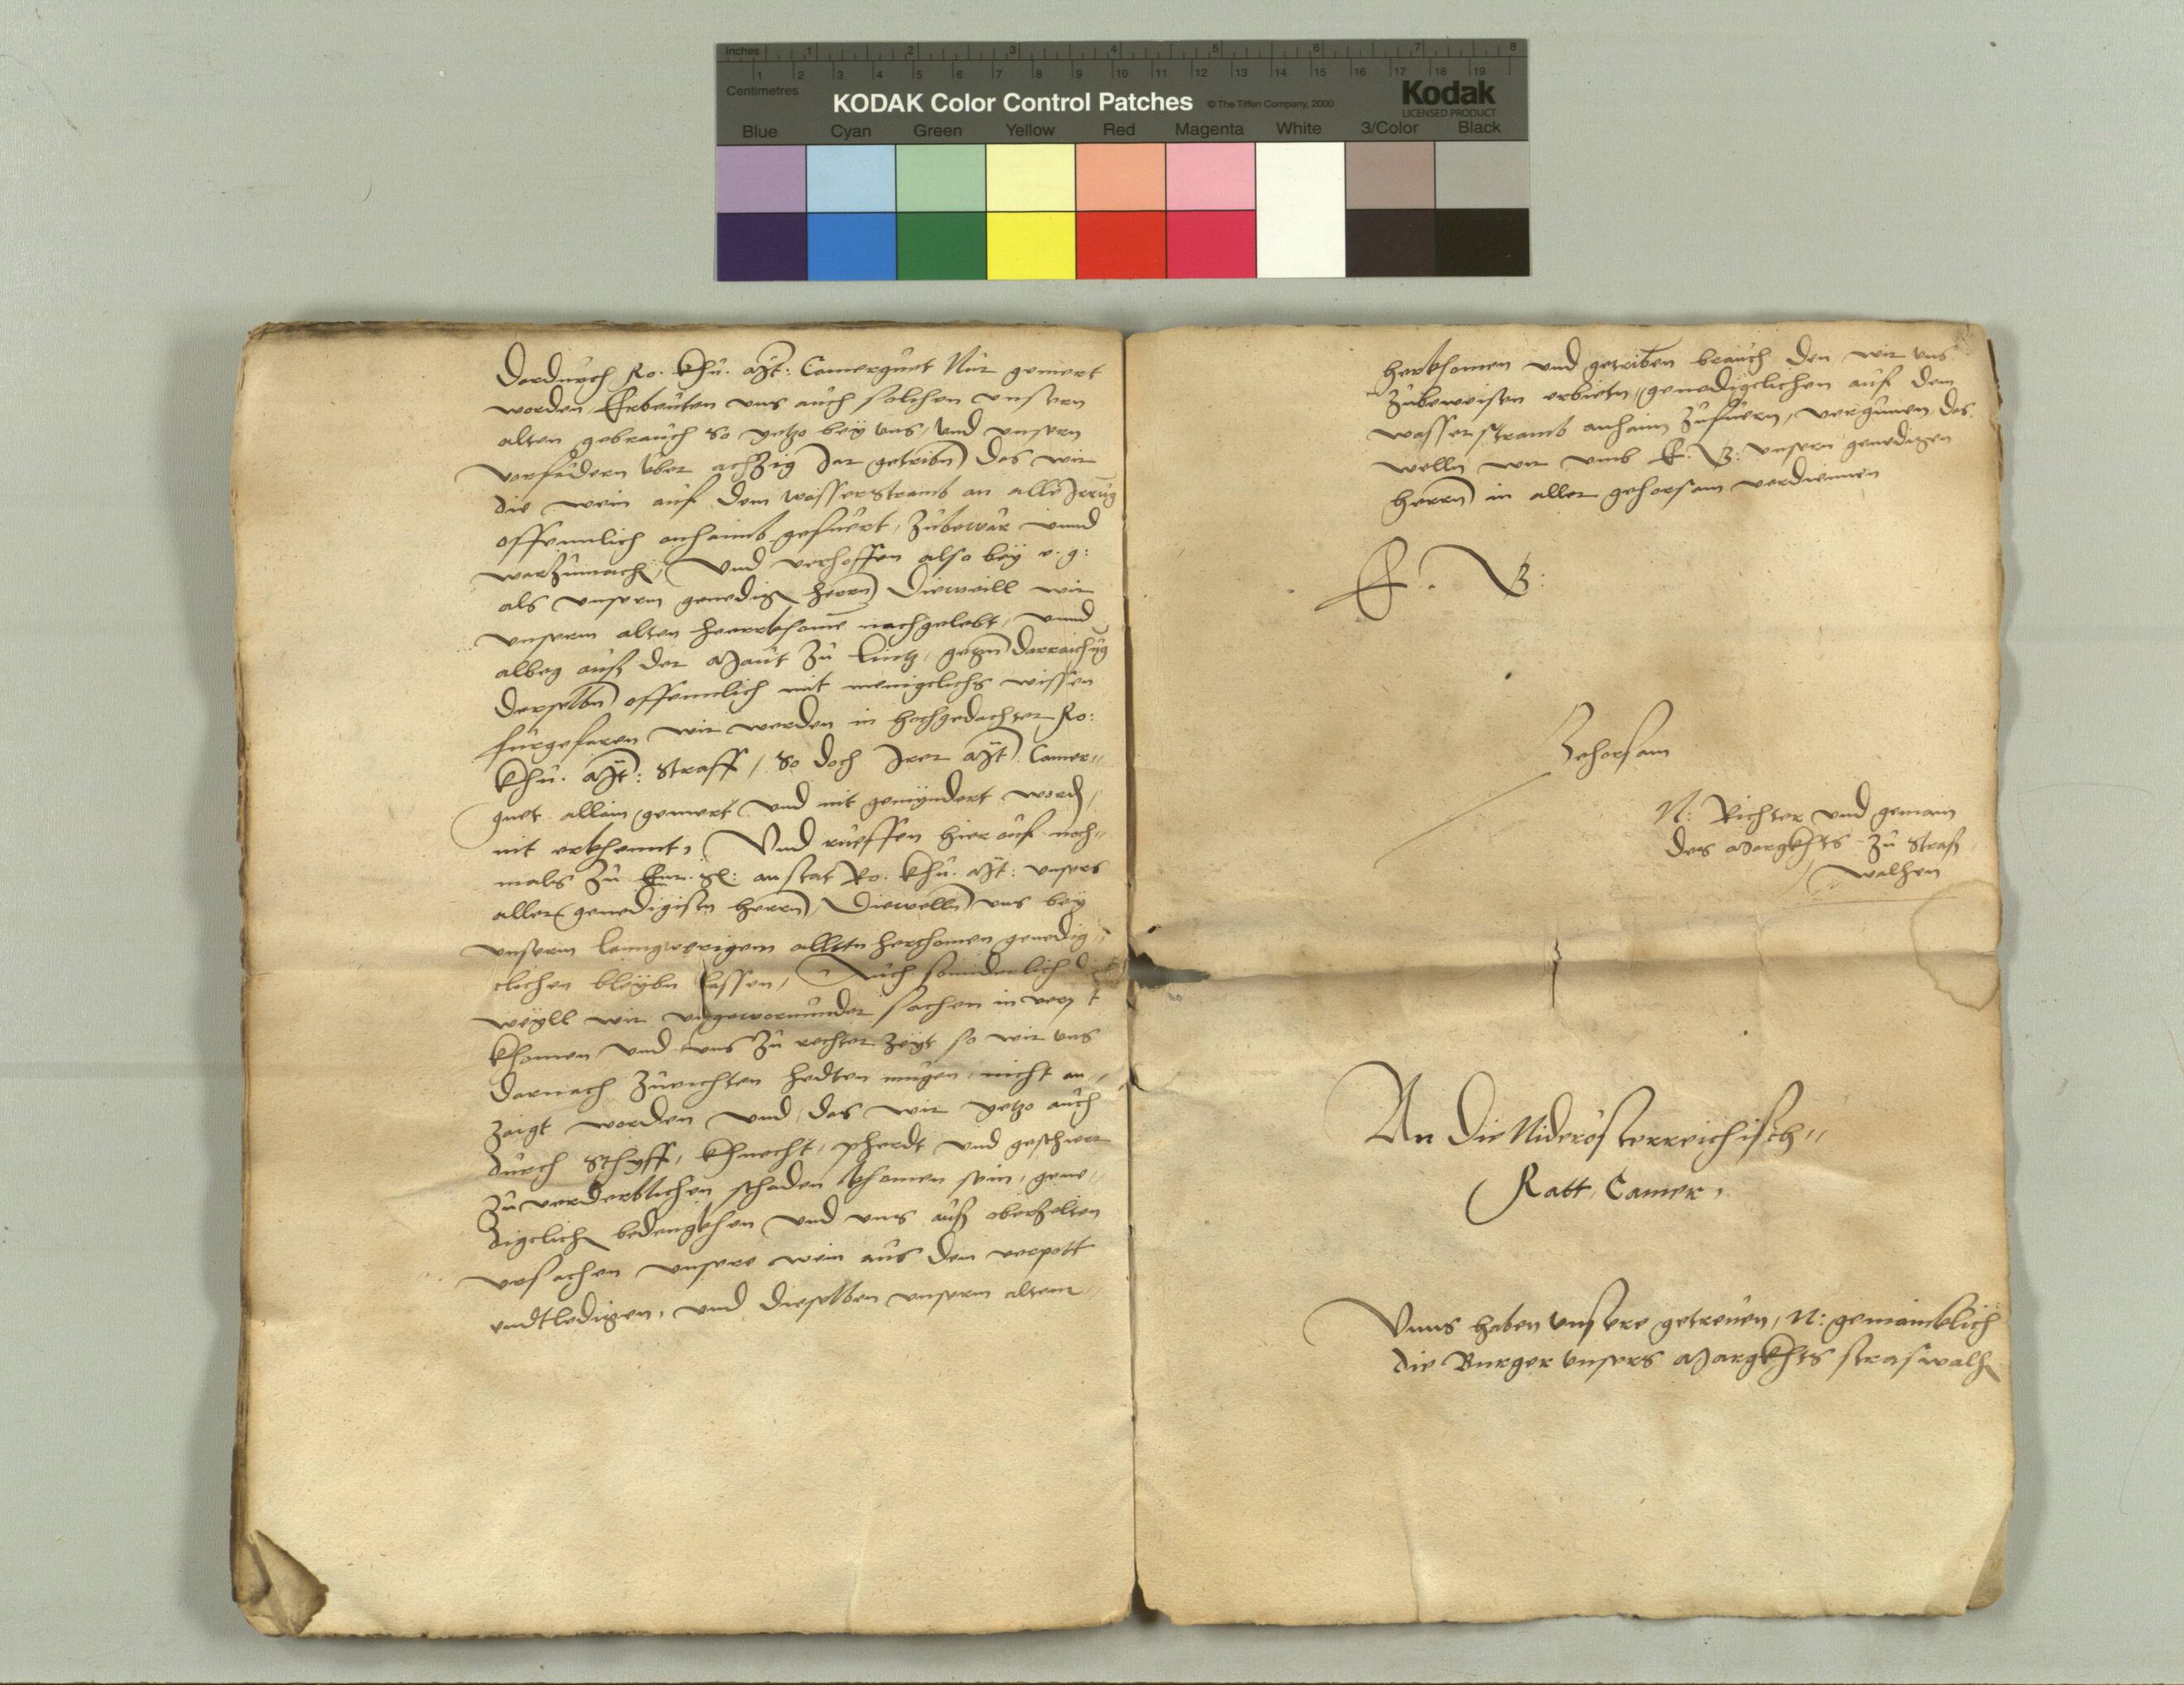 Inches 1 2 3 4 5 6 7 8
Centimetres 1 2 3 4 5 6 7 8 9 10 11 12 13 14 15 16 17 18 19
KODAK Color Control Patches © The Tiffen Company, 2000 Kodak
LICENSED PRODUCT
Blue Cyan Green Yellow Red Magenta White 3/Color Black
Dardurch Ro. Khu. Mt: Camerguet Nur gemert
worden, Erbeuten uns auch solchen unsern
alten gebrauch so yetzo bey uns, und unsern
vorfudern uber achtzig Jar getribn das wir
die wein auf dem wasserstramb an alle Irrung
offennlich anhaimb gefuert, zubewar unnd
warzumachn, Und verhoffen also bey e. g:
als unsern genedign herrn Dieweill wir
unserm alten heerkhome nachgelebt, unnd
albeg auß der Maut zu Lintz, gegen darraichung
derselbn offennlich mit meniglichs wissen
furgefaren wir werden in hochgedachter Ro:
Khu. Mt: Straff, so doch Irer Mt Camer„
guet allain gemert und nit gemyndert wordn,
nit erkhennt, Und rueffen hierauf noch„
mals zu anstat Ro. Khu. Mt: unsers
aller genedigisten herrn, Diewelln uns bey
unserm lanngwerigem allten herchomen genedig„
clichen bleybn lassen, Auch sonnderlich
weyll wir ungewornnder sachen in
khomen und uns zu rechter zeyt so wir uns
darnach zurichten hedten mugen, nicht an„
zaigt worden und das wir yetzo auch
durch Schyff, Khnecht, pherdt und geschirr
zu verderblichen schaden khomen sein, gene„
digclichn bedengkhen und uns auß oberzelten
ursachen unsere wein aus dem verpott
enndtledigen, und dieselben unserm altem
herkhomen und getriben brauch den wir uns
zubeweisen erbieten, genedigclichen auf dem
wasserstramb anhaim zufuern, vergunen, das
welln wir umb E. G: unsern genedigen
herrn in aller gehorsam verdiennen
E. G:
Gehorsam
N: Richter und gemain
des Margkhts zu Straß
walhen
An die Niderösterreichisch„
Ratt Camer,
Unns haben unsere getreuen, N: gemaincklich
die Burger unsers Margkhts straswalhn